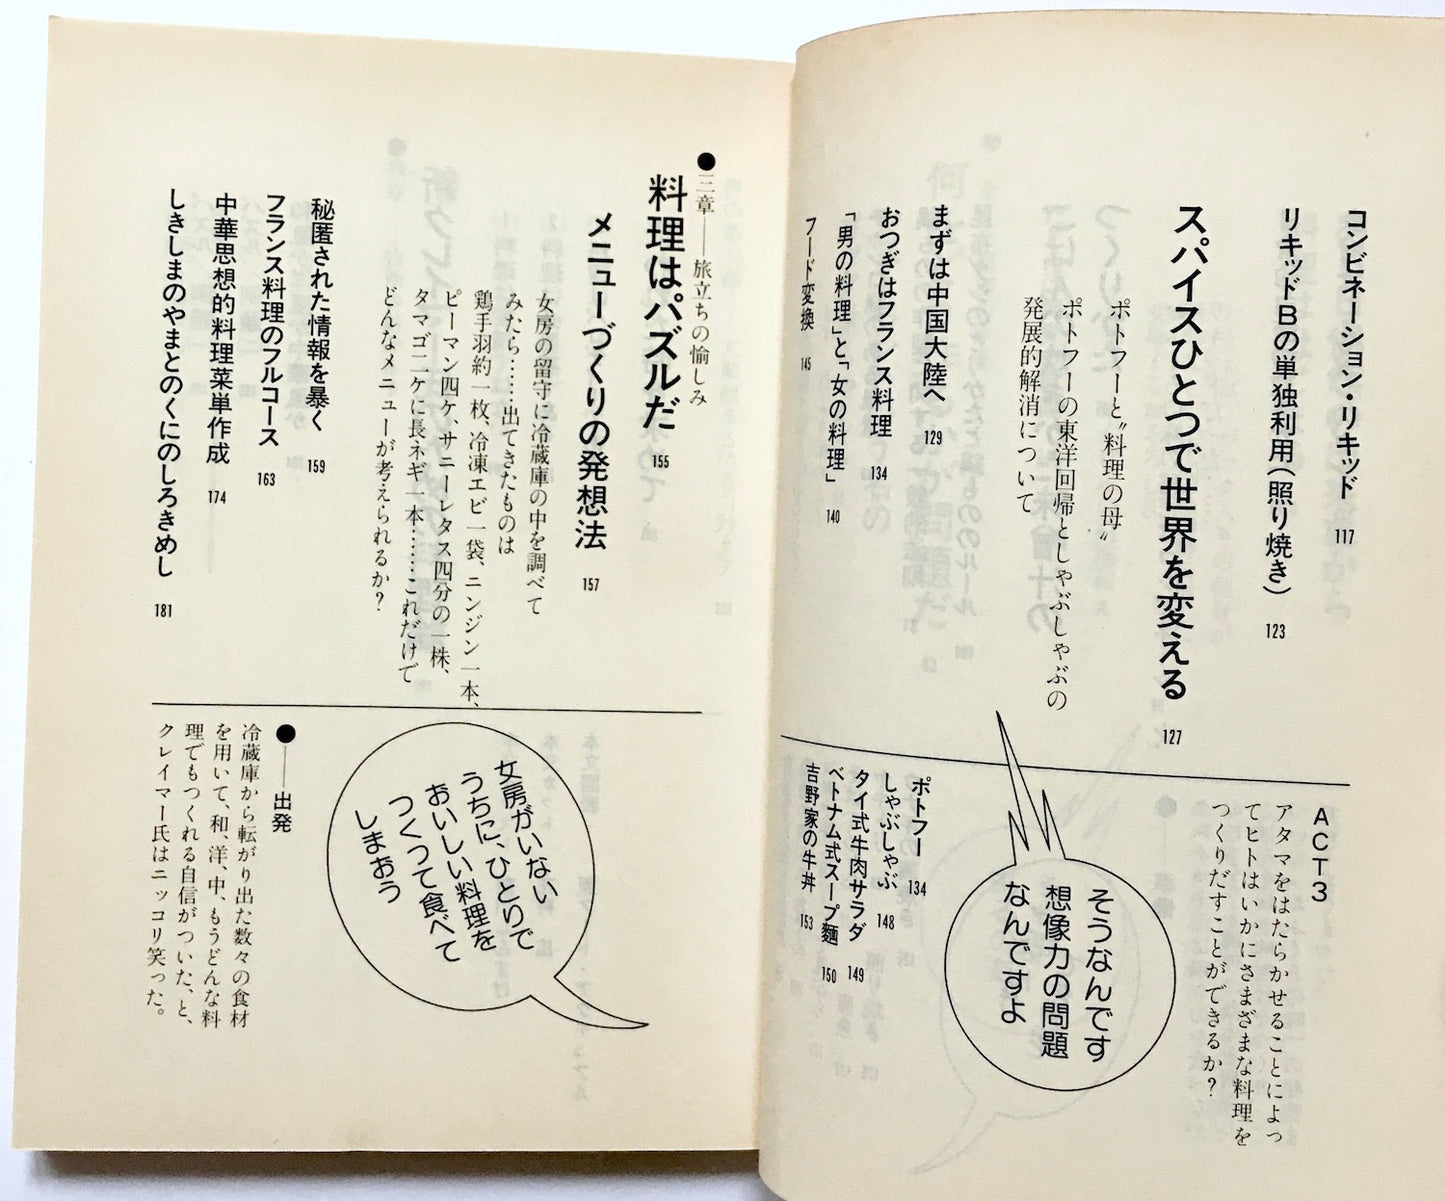 コンビネーション・リキッド 117
リキッドBの単独利用(照り焼き) 123
スパイスひとつで世界を変える 127
ポトフーと〝料理の母〟
ポトフーの東洋回帰としゃぶしゃぶの
発展的解消について
まずは中国大陸へ 129
おつぎはフランス料理 134
「男の料理」と「女の料理」 140
フード変換 145
ACT3
アタマをはたらかせることによっ
てヒトはいかにさまざまな料理を
つくりだすことができるか?
そうなんです
想像力の問題
なんですよ
ポトフー 134
しゃぶしゃぶ 148
タイ式牛肉サラダ 149
ベトナム式スープ麵 150
吉野家の牛丼 153
●三章——旅立ちの愉しみ
料理はパズルだ 155
メニューづくりの発想法 157
女房の留守に冷蔵庫の中を調べて
みたら……出てきたものは
鶏手羽約一枚、冷凍エビ一袋、ニンジン一本、
ピーマン四ケ、サニーレタス四分の一株、
タマゴ二ケに長ネギ一本……これだけで
どんなメニューが考えられるか?
秘匿された情報を暴く 159
フランス料理のフルコース 163
中華思想的料理菜単作成 174
しきしまのやまとのくにのしろきめし 181
女房がいない
うちに、ひとりで
おいしい料理を
つくって食べて
しまおう
●——出発
冷蔵庫から転がり出た数々の食材
を用いて、和、洋、中、もうどんな料
理でもつくれる自信がついた、と、
クレイマー氏はニッコリ笑った。